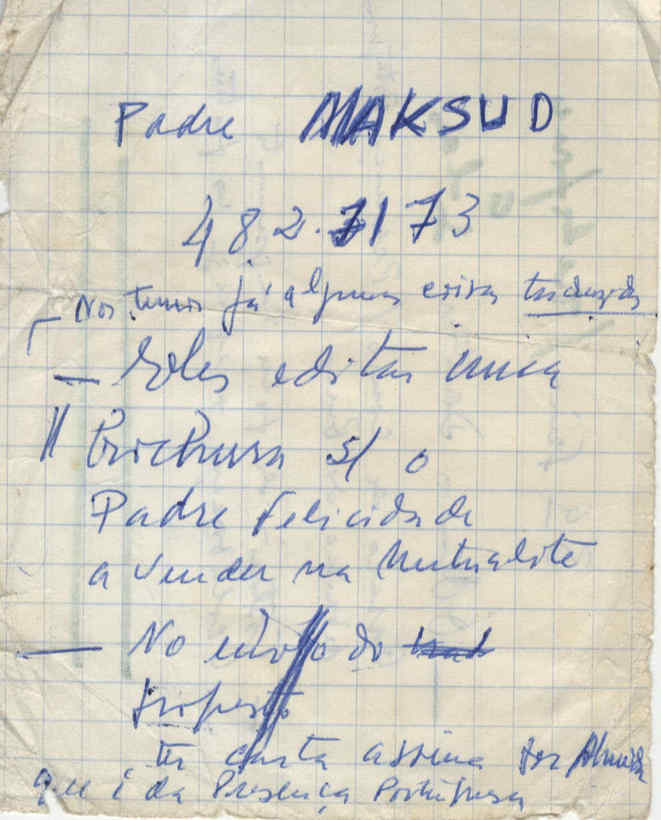 Padre MAKSUD
482.7173
Nos temos já algumas coisas traduzidas
— Eles editam uma
|| brochura s/ o
Padre Felicidade
a vender na Mutualité
— No envio do
Ter carta assina por Almeida
que é da Presença Portuguesa